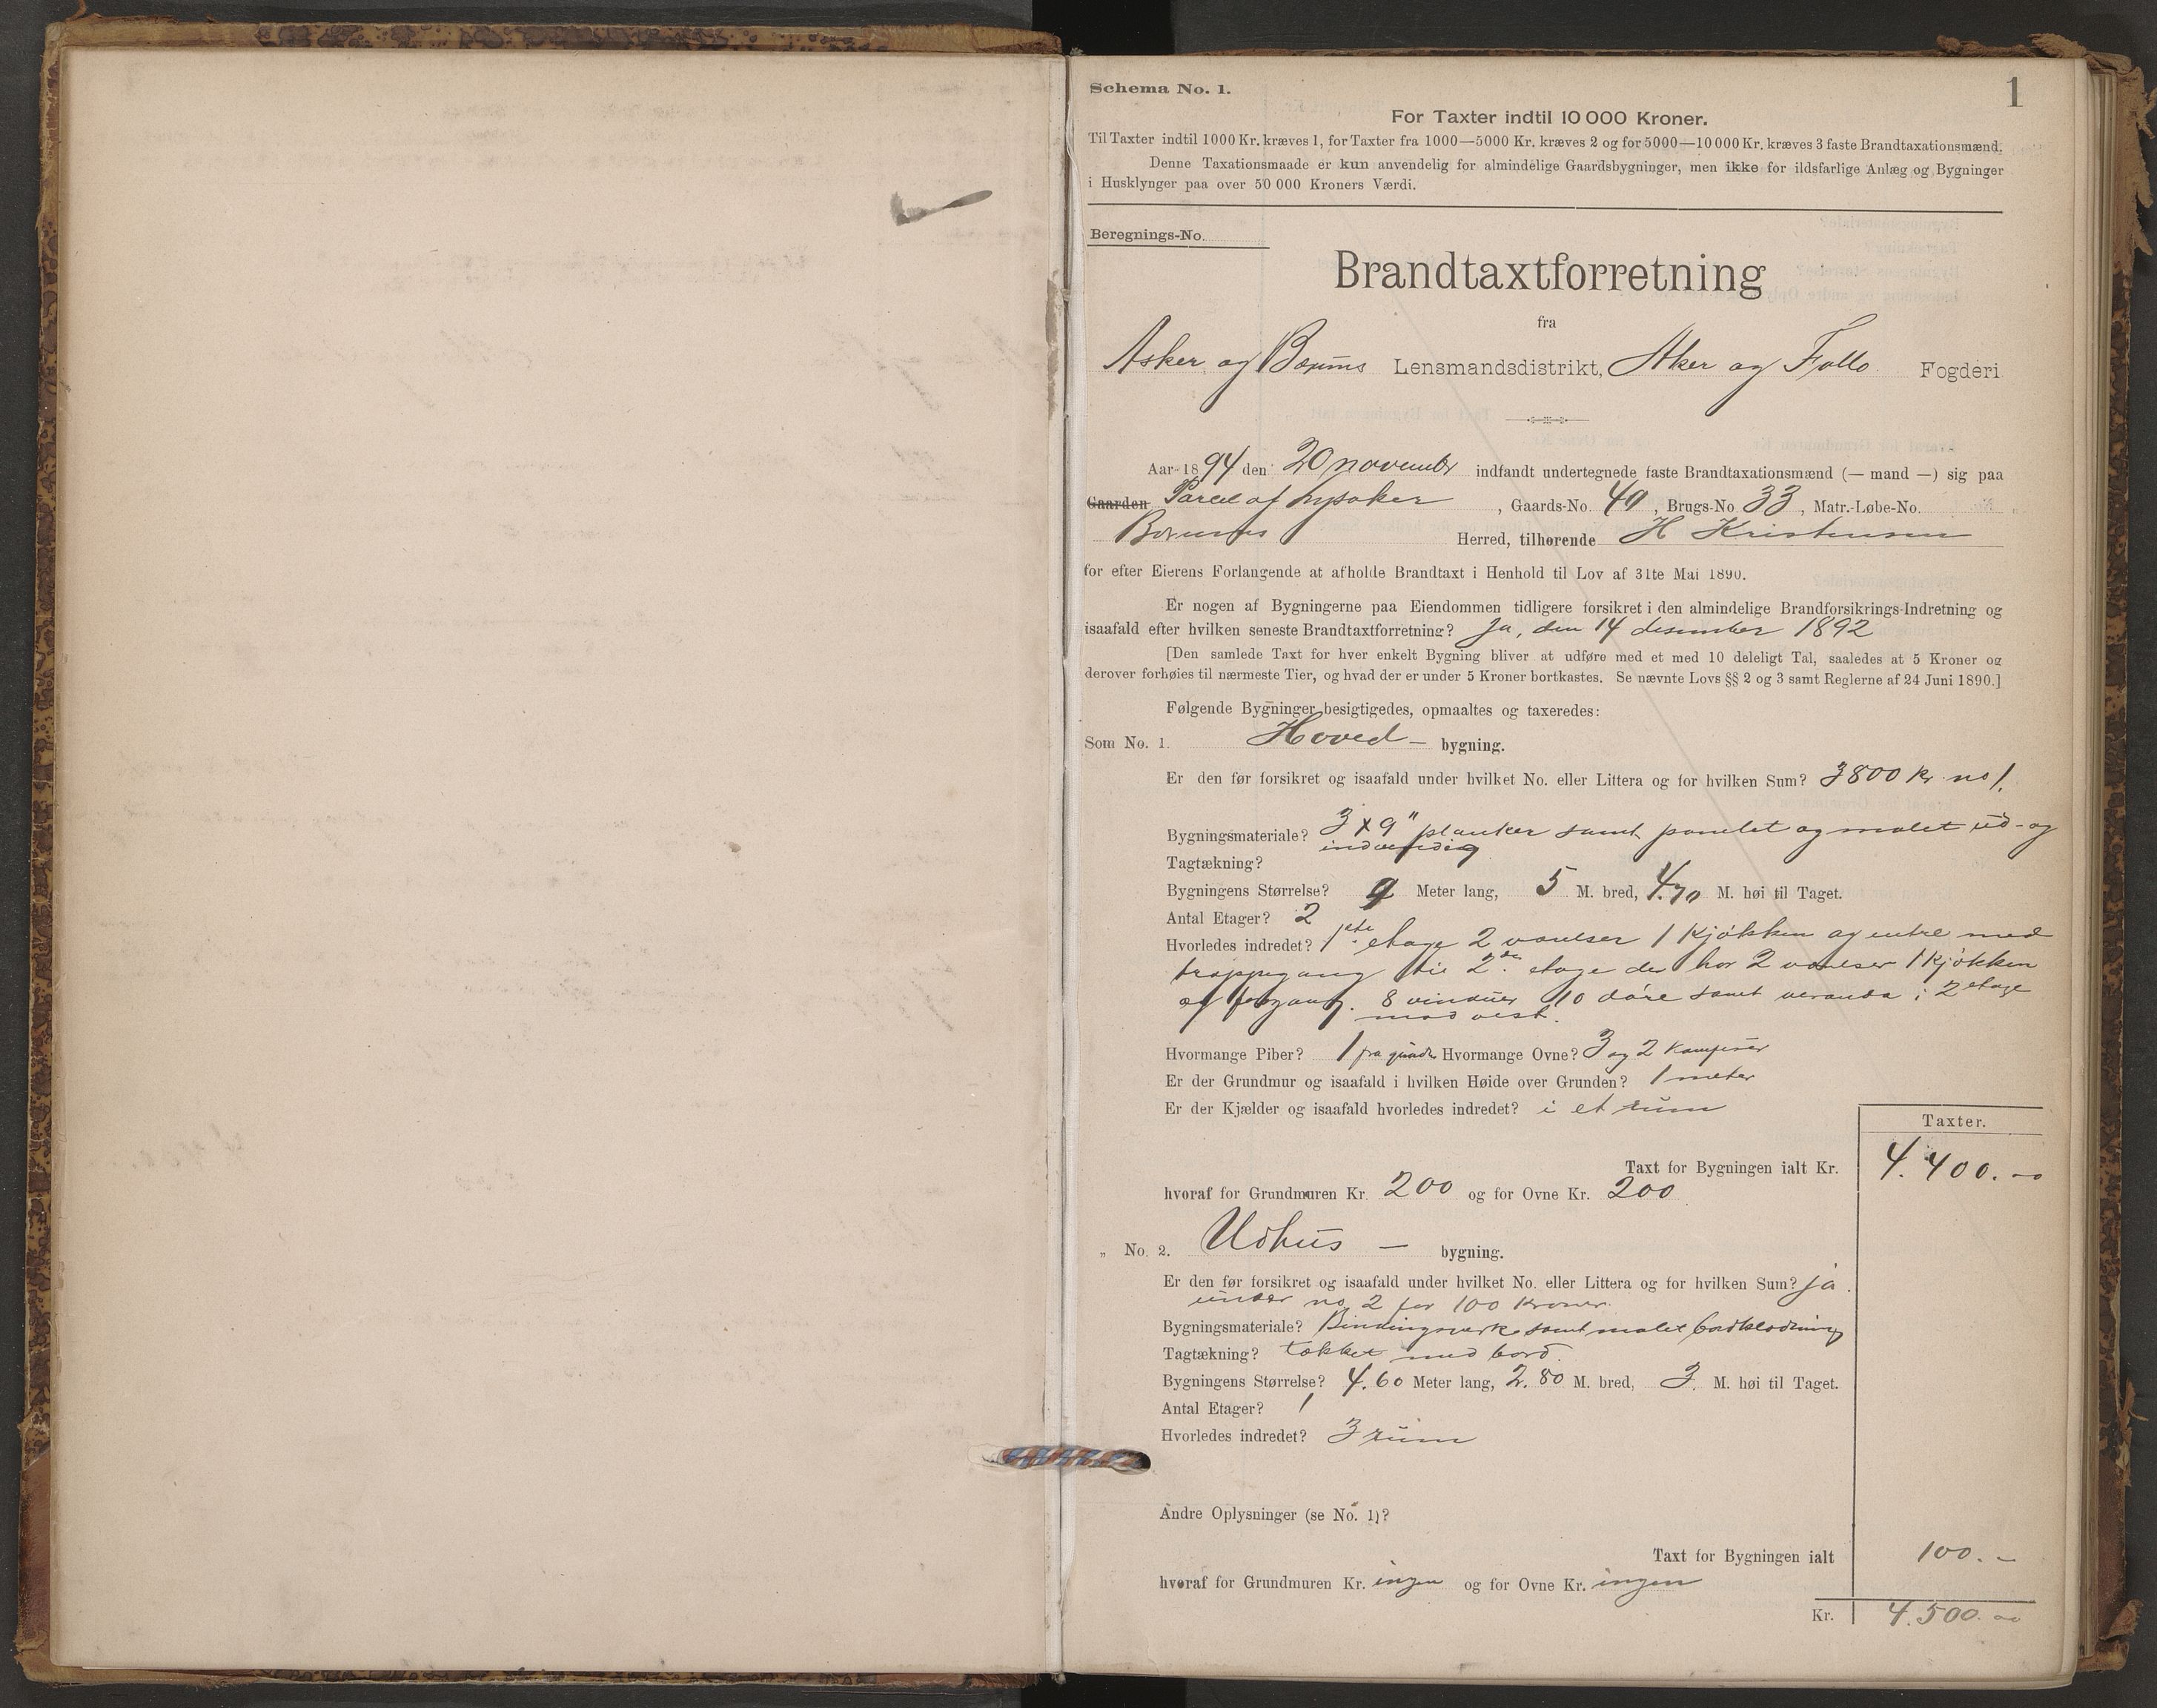 Schema No. 1.
1
For Taxter indtil 10 000 Kroner.
Til Taxter indtil 1000 Kr. kræves 1, for Taxter fra 1000—5000 Kr. kræves 2 og for 5000—10 000 Kr. kræves 3 faste Brandtaxationsmænd.
Denne Taxationsmaade er kun anvendelig for almindelige Gaardsbygninger, men ikke for ildsfarlige Anlæg og Bygninger
i Husklynger paa over 50 000 Kroners Værdi.
Beregnings-No.
Brandtaxtforretning
fra
Asker og Bærums Lensmandsdistrikt, Aker og Follo Fogderi
Aar 1894 den 20 november indfandt undertegnede faste Brandtaxationsmænd (— mand —) sig paa
Gaarden Parcel af Lysaker, Gaards-No. 40, Brugs-No. 33, Matr.-Løbe-No.
Bærums Herred, tilhørende H Kristensen
for efter Eierens Forlangende at afholde Brandtaxt i Henhold til Lov af 31te Mai 1890.
Er nogen af Bygningerne paa Eiendommen tidligere forsikret i den almindelige Brandforsikrings-Indretning og
isaafald efter hvilken seneste Brandtaxtforretning? Ja, den 14 desember 1892
[Den samlede Taxt for hver enkelt Bygning bliver at udføre med et med 10 deleligt Tal, saaledes at 5 Kroner og
derover forhøies til nærmeste Tier, og hvad der er under 5 Kroner bortkastes. Se nævnte Lovs §§ 2 og 3 samt Reglerne af 24 Juni 1890.]
Følgende Bygninger besigtigedes, opmaaltes og taxeredes:
Som No. 1. Hoved – bygning.
Er den før forsikret og isaafald under hvilket No. eller Littera og for hvilken Sum? 3800 kr no 1.
Bygningsmateriale? 3 x 9" planker samt panelet og malet ud- og
indvendig
Tagtækning?
Bygningens Størrelse? 9 Meter lang, 5 M. bred, 4.70 M. høi til Taget.
Antal Etager? 2
Hvorledes indredet? 1ste etage 2 værelser 1 kjøkken og entre med
trappegang til 2den etage der har 2 værelser 1 kjøkken
og forgang. 8 vinduer 10 døre samt veranda i 2 etage
mod vest.
Hvormange Piber? 1 fra grunden Hvormange Ovne? 3 og 2 komfurer
Er der Grundmur og isaafald i hvilken Høide over Grunden? 1 meter
Er der Kjælder og isaafald hvorledes indredet? i et rum
Taxter.
Taxt for Bygningen ialt Kr. 4.400.–
hvoraf for Grundmuren Kr. 200 og for Ovne Kr. 200
„ No. 2. Udhus – bygning.
Er den før forsikret og isaafald under hvilket No. eller Littera og for hvilken Sum? ja
under no 2 for 100 kroner.
Bygningsmateriale? Bindingsverk samt malet bordklædning
Tagtækning? tækket med bord.
Bygningens Størrelse? 4.60 Meter lang, 2.80 M. bred, 3. M. høi til Taget.
Antal Etager? 1
Hvorledes indredet? 3 rum
Andre Oplysninger (se No. 1)?
Taxt for Bygningen ialt 100.–
hvoraf for Grundmuren Kr. ingen og for Ovne Kr. ingen
Kr. 4.500.00